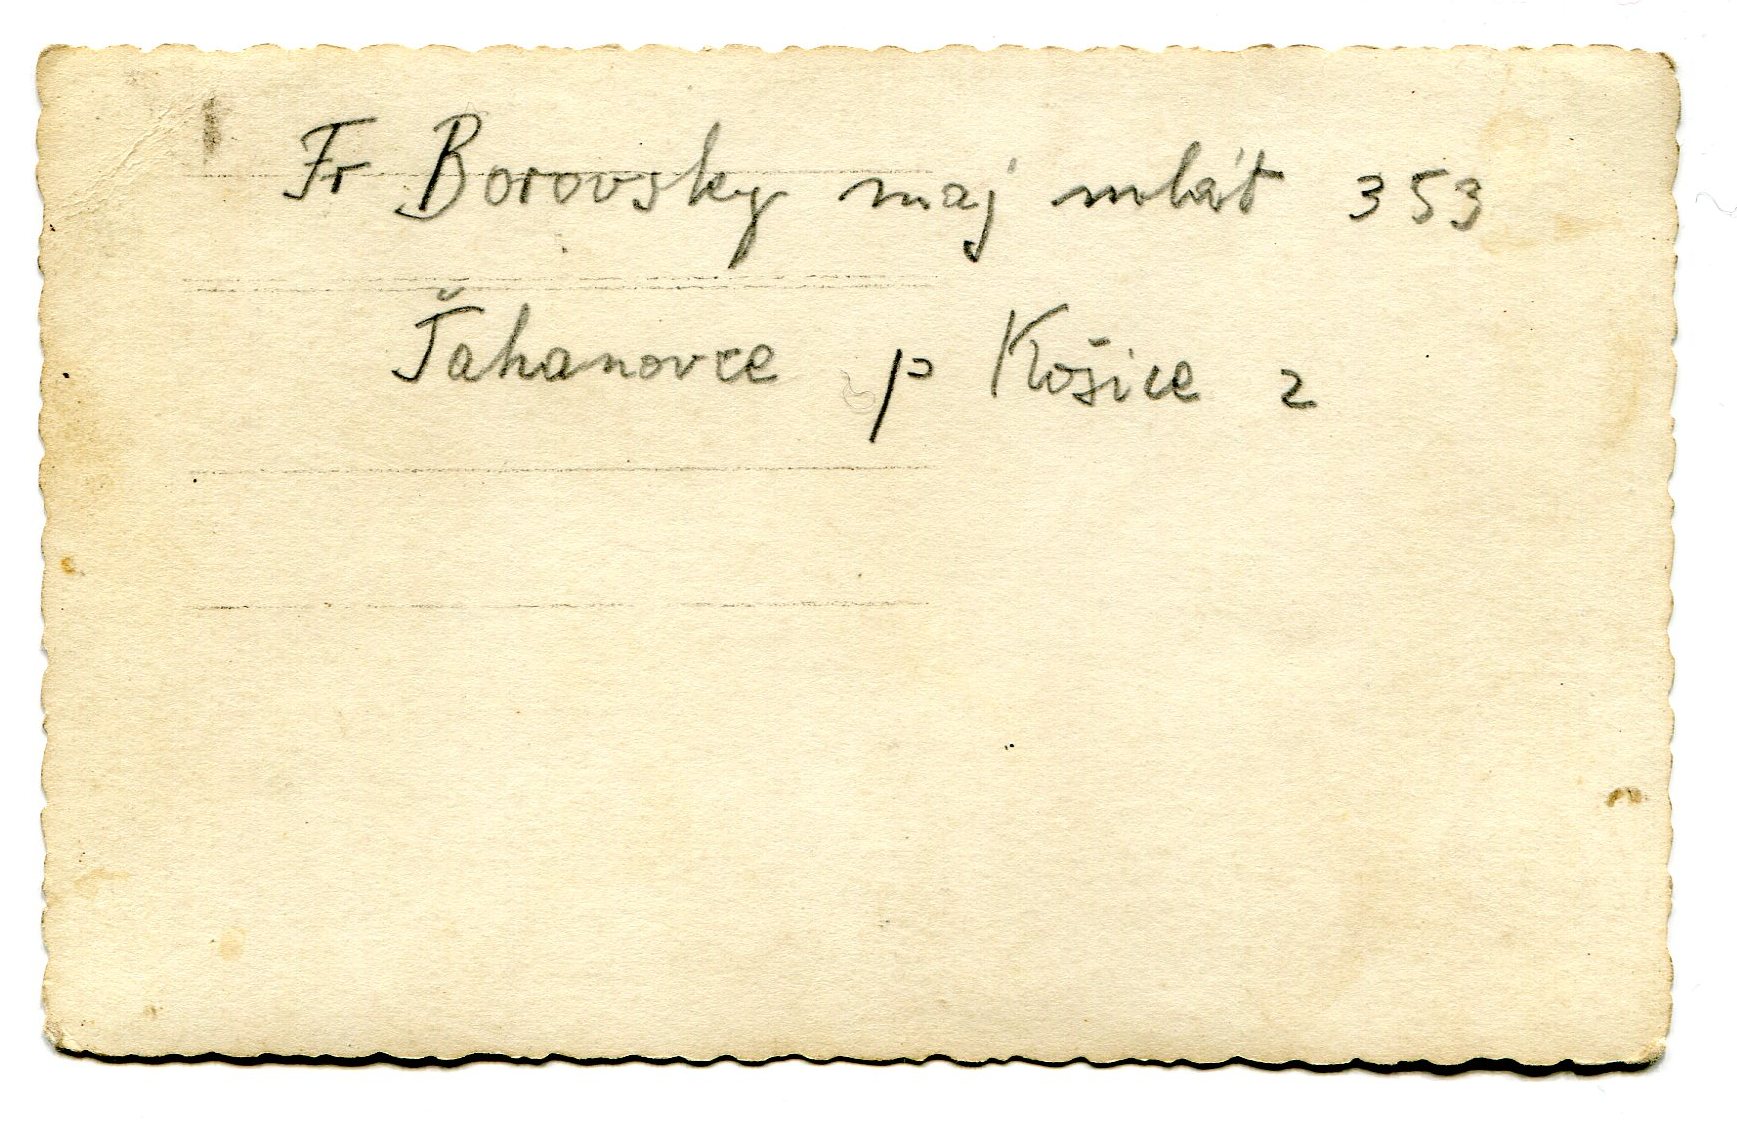 Fr Borovsky maj mlát 353
Ťahanovce p Košice 2